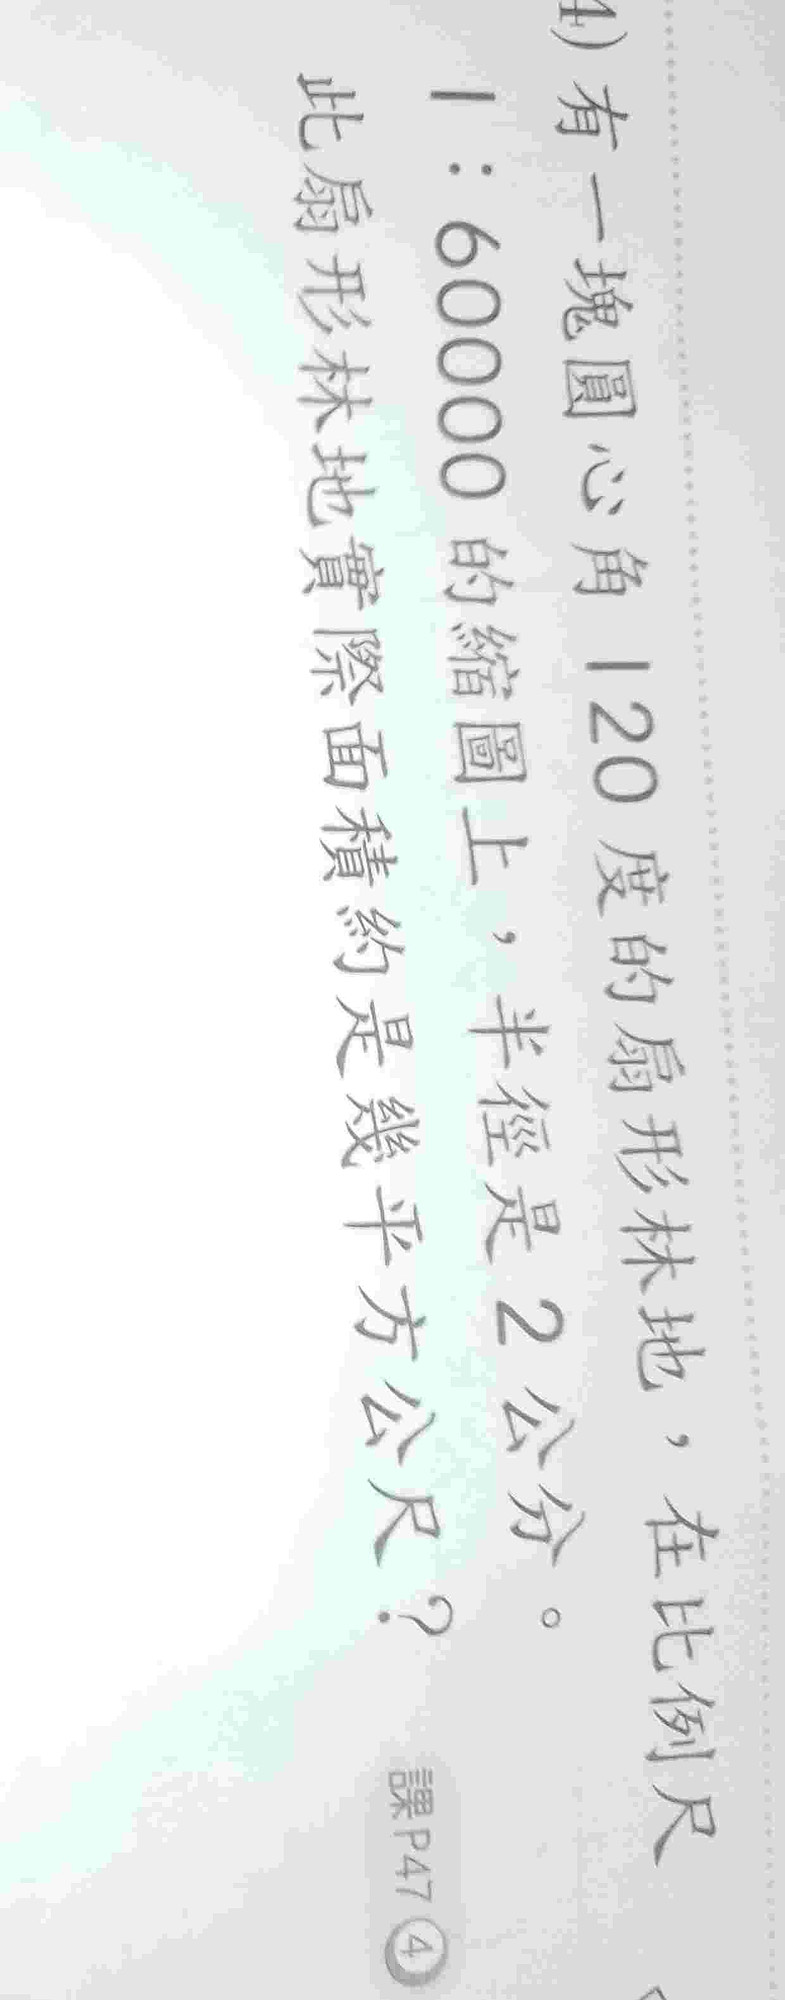 4) 有一塊圓心角 120 度的扇形林地，在比例尺
1：60000 的縮圖上，半徑是 2 公分。
此扇形林地實際面積約是幾平方公尺？
課P47 ④